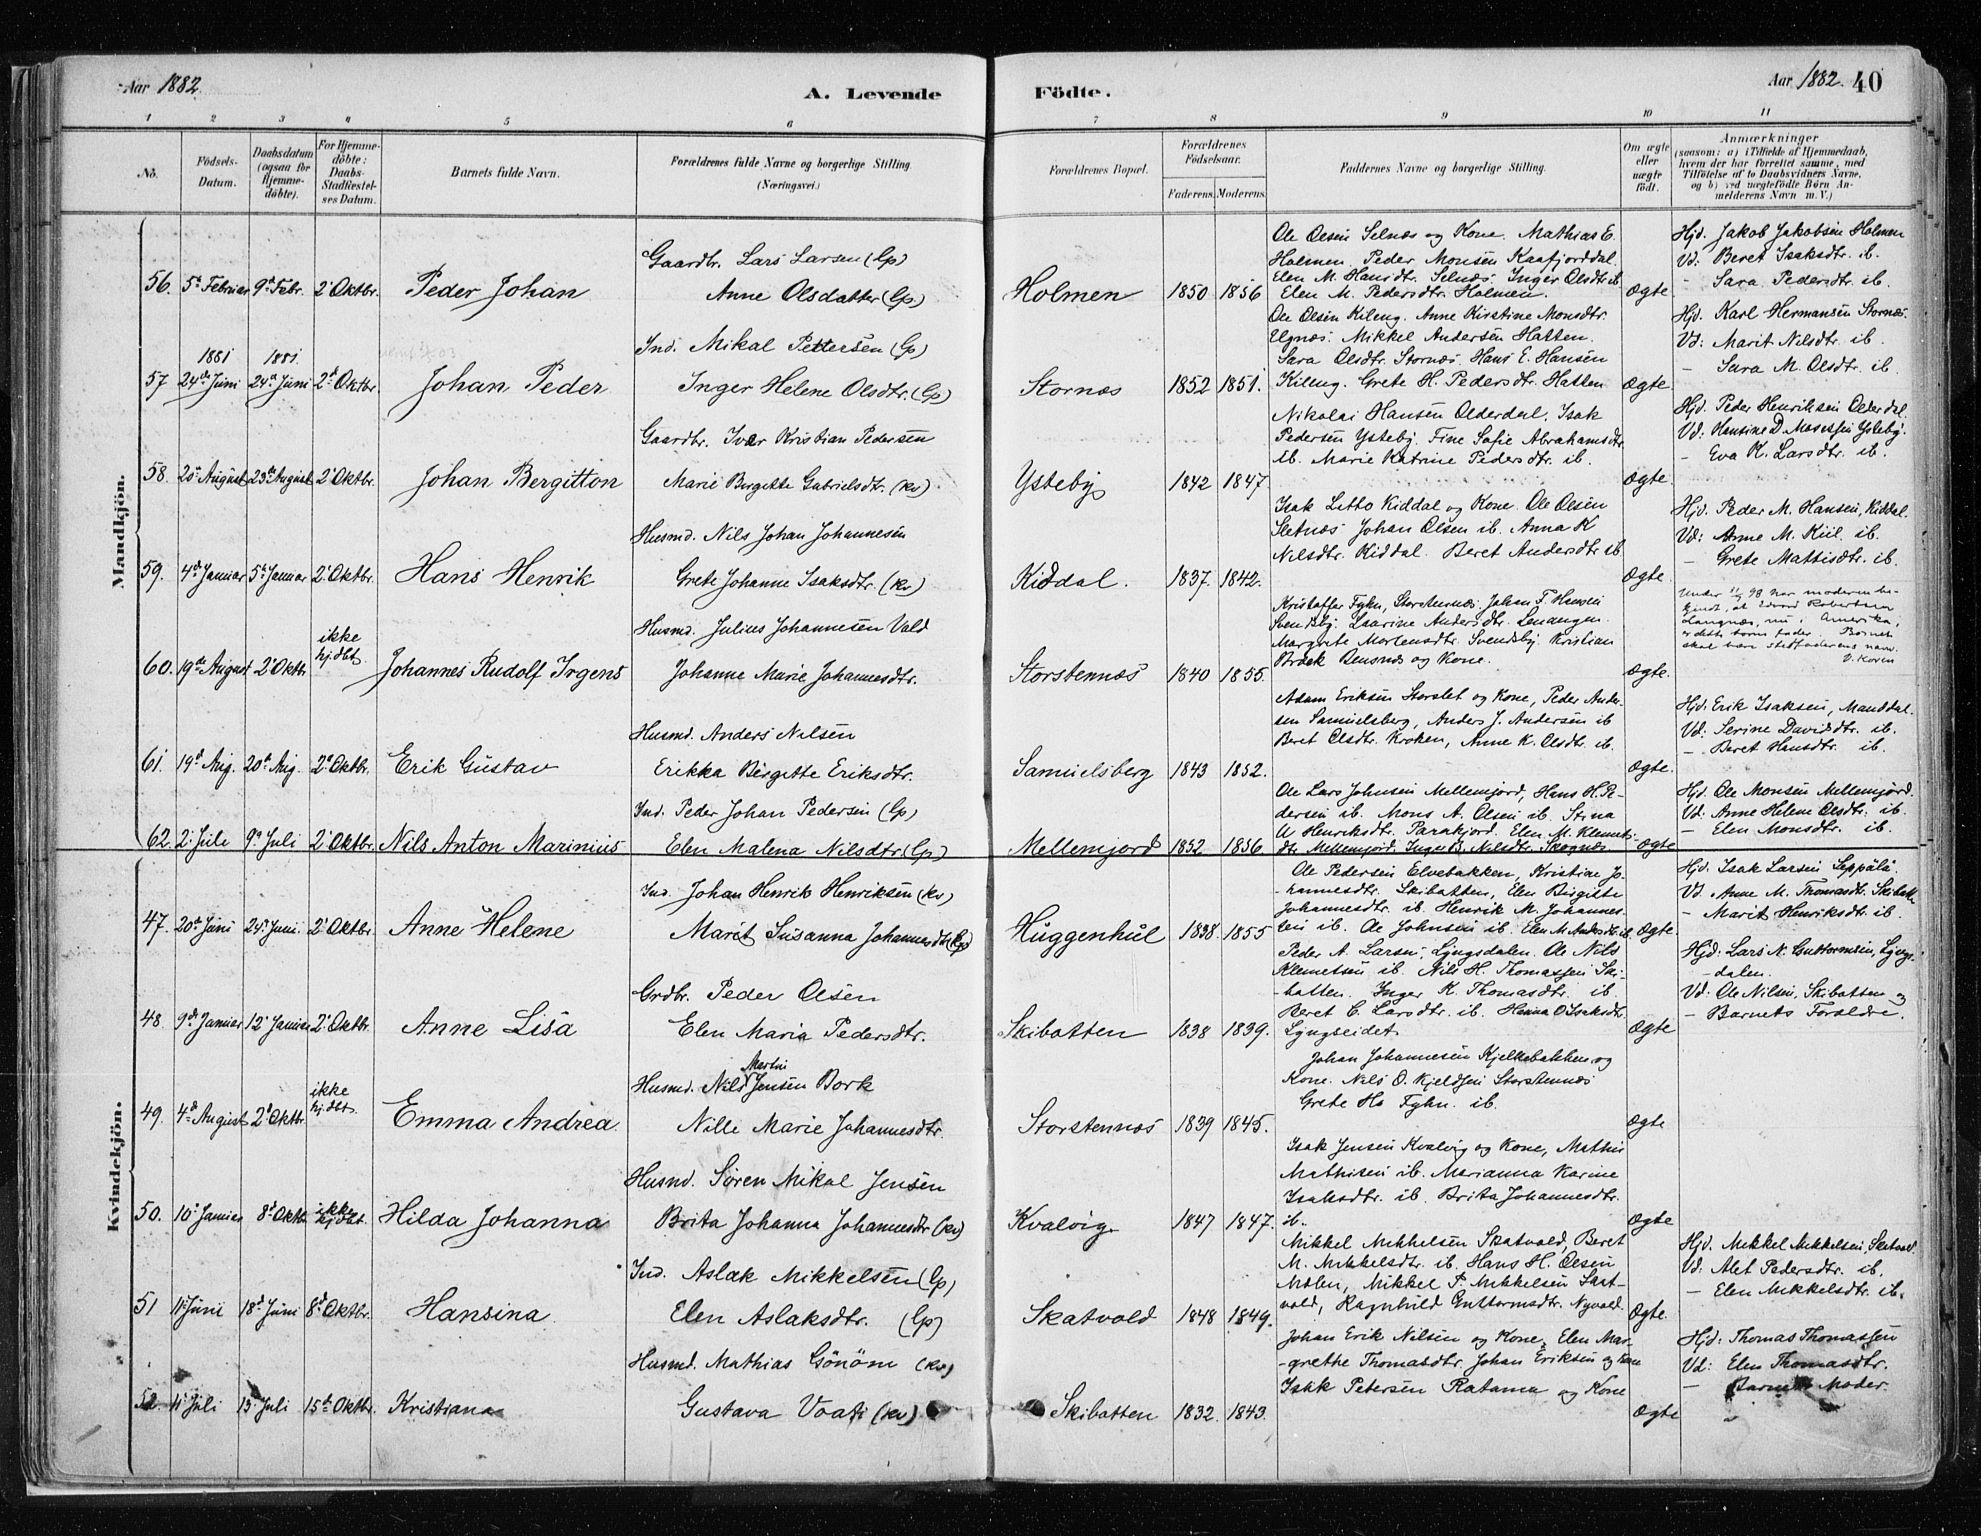 Aar 1882.
A. Levende Födte.
Aar 1882. 40
1 2 3 4 5 6 7 8 9 10 11
No.
Födsels-Datum.
Daabsdatum (ogsaa for Hjemmedöbte).
For Hjemmedöbte: Daabs-Stadfæstelses Datum.
Barnets fulde Navn.
Forældrenes fulde Navne og borgerlige Stilling.
(Næringsvei.)
Forældrenes Bopæl.
Forældrenes Födselsaar.
Faderens. Moderens.
Faddernes Navne og borgerlige Stilling.
Om ægte eller uægte födt.
Anmærkninger
(saasom: a) i Tilfælde af Hjemmedaab,
hvem der har forrettet samme, med
Tilföielse af to Daabsvidners Navne,
og b) ved uægtefödte Börn An-
melderens Navn m. V.)
Mandkjön.
Gaardbr. Lars Larsen (Lp)
56. 5te Februar 9de Febr. 2 Oktbr. Peder Johan Anne Olsdatter (Lp) Holmen 1850 1856 Ægte
Ole Olsen Selnæs og Kone. Mathias E.
Holmen. Peder Monsen Kaafjorddal.
Elen M. Hansdtr. Selnæs. Inger Olsdtr ib
Elen M. Pedersdtr. Holmen.
Hjd. Jakob Jakobsen Holmen
Vd: Beret Isaksdtr. ib.
- Sara Pedersdtr ib.
Ind. Mikal Pettersen (Lp)
1881 1881.
57 24de Juni 24de Juni 2d Oktbr. Johan Peder Inger Helene Olsdtr. (Lp) Stornæs 1852 1851. Ægte
Ole Olsen Kileng. Anne Kirstine Monsdtr.
Elgnæs. Mikkel Andersen Hatten.
Sara Olsdtr. Stornæs Hans E. Hansen
Kileng. Grete H. Pedersdtr. Hatten
Hjd. Karl Hermansen Stornæs.
Vd: Marit Nilsdtr ib.
- Sara M. Olsdtr. ib.
Gaardbr. Iver Kristian Pedersen
58. 20de August 23de August 2 Oktbr. Johan Bergitton Marie Bergette Gabrielsdtr. (kv) Ysteby 1842 1847 Ægte.
Nikolai Hansen Olderdal. Isak
Pedersen Ysteby. Fine Sofie Abrahamsdtr
ib. Marie Katrine Pedersdtr. ib.
Hjd. Peder Henriksen Olderdal.
Vd: Hansine D Mosessen Ysteby.
- Eva K. Larsdtr. ib.
Husmd. Nils Johan Johannesen
59. 4de Januar 5te Januar 2 Oktbr. Hans Henrik Grete Johanne Isaksdtr. (kv) Kiddal. 1837. 1842. Ægte.
Isak Litto Kiddal og Kone. Ole Olsen
Sletnæs Johan Olsen ib. Anna K
Nilsdtr. Kiddal. Beret Andersdtr ib.
Hjv. Peder M. Hansen, Kiddal.
Vd: Anne M. Kiil ib.
- Grete Mattisdtr. ib.
Husmd. Julius Johannesen Vald
ikke hj. dbt.
60. 19de August 2 Oktbr Johannes Rudolf Irgens Johanne Marie Johannesdtr. Storstennæs 1840 1855. Ægte.
Kristoffer Fykn, Storsteennæs. Johan F. Hansen
Svendsby. Laarine Andersdtr. Lenangen.
Margrete Mortensdtr. Svendsby. Kristian
Bræck Bensnæs og Kone.
Under 98 har moderen be-
kjendt, at Edvard Robertsen
Langnæs, nu i Amerika,
er dette barns fader. Barnet
skal bære stedfaderens navn.
V. Koren
Husmd. Anders Nilsen
61. 19de Aug. 20de Aug. 2 Oktbr. Erik Gustav Erikka Birgitte Eriksdtr. Samuelsberg 1843 1852. Ægte.
Adam Eriksen Storslet og Kone, Peder Ander-
sen Samuelsberg, Anders J. Andersen ib
Beret Olsdtr. Kroken, Anne K. Olsdtr. ib.
Hjd. Erik Isaksen, Manddal.
Vd: Serine Daviddtr. ib.
- Beret Hansdtr ib.
Ind. Peder Johan Pedersen (Lp)
62. 2 Jule 9de Juli 2 Oktbr. Nils Anton Marinius Elen Malena Nilsdtr (Lp) Mellemjord 1852 1856 Ægte
Ole Lars Johnsen Mellemjord, Hans H. Pe-
dersen ib. Mons A. Olsen ib. Stina
U Henriksdtr. Parakjord. Elen M. Klemets-
dtr Mellemjord Inger B. Nilsdtr. Skognæs
Hjd. Ole Monsen Mellemjord.
Vd: Anne Helene Olsdtr. ib.
- Elen Monsdtr. ib.
Kvindekjön.
Ind. Johan Henrik Henriksen (kv)
47. 20de Juni 24de Juni 2 Oktbr Anne Helene Marit Susanna Johannesdtr (Lp) Huggenhul 1838. 1855 Ægte
Ole Pedersen Elvebakken, Kristine Jo-
hannesdtr. Skibatten, Elen Birgitte
Johannesdtr. ib. Henrik M. Johannes-
sen ib. Ole Johnsen ib. Elen M Andersdtr ib.
Hjd. Isak Larsen Seppälä
Vd. Anne M. Thomasdtr. Skibatten
- Marit Henriksdtr. ib.
Grdbr. Peder Olsen
48. 9de Januar 12 Januar 2 Oktbr. Anne Lisa Elen Maria Pedersdtr. Skibatten 1838 1839. Ægte
Peder A. Larsen, Lyngsdalen. Ole Nils
Klemetsen ib. Nils H. Thomassen Ski-
batten. Inger K. Thomasdtr. ib
Beret C. Larsdtr. ib. Henna O Isaksdtr.
Lyngseidet
Hjd: Lars N. Guttormsen, Lyngs-
dalen.
Vd: Ole Nilsen, Skibatten og
- Barnets Forældre.
Husmd. Nils Martin Jensen Bork
ikke hj. dbt.
49. 4de August 2 Oktbr Emma Andrea Nille Marie Johannesdtr. Storstennæs 1839 1845. Ægte
Johan Johannesen Kjelkebakken og
Kone. Nils O. Kjeldsen Storstennæs
Grete Ho Fykn. ib.
Husmd. Søren Mikal Jensen
50. 10 Januar 8 Oktbr ikke hj dbt. Hilda Johanna Brita Johanna Johannesdtr (kv) Kvalvig 1847 1847. Ægte
Isak Jensen Kvalvig og Kone, Mathis
Mathisen ib. Marianna Karine
Isaksdtr. ib. Brita Johannesdtr.
ib.
Ind. Aslak Mikkelsen (Lp)
51 11 Juni 18d Juni 8d Oktbr. Hansina Elen Aslaksdtr. (Lp) Skatvold 1848 1849. Ægte.
Mikkel Mikkelsen Skatvold, Beret
M. Mikkelsdtr. ib. Hans H. Olsen
Molen, Mikkel P. Mikkelsen Skat-
vold, Ragnhild Guttormsdtr. Nyvold.
Hjd. Mikkel Mikkelsen, Skatvold
Vd: Alet Pedersdtr. ib.
- Elen Mikkelsdtr ib.
Husmd. Mathias Gönöm (kv)
52 11 Juli 13 Juli 15de Oktbr. Kristiana Gustava Voati (kv) Skibatten 1832. 1843. Ægte
Johan Erik Nilsen og Kone, Elen Mar-
grethe Thomasdtr. Johan Eriksen og Kone
Isak Petersen Ratama og Kone
Hjd: Thomas Thomassen
Vd: Elen Thomasdtr.
- Barnets Moder.